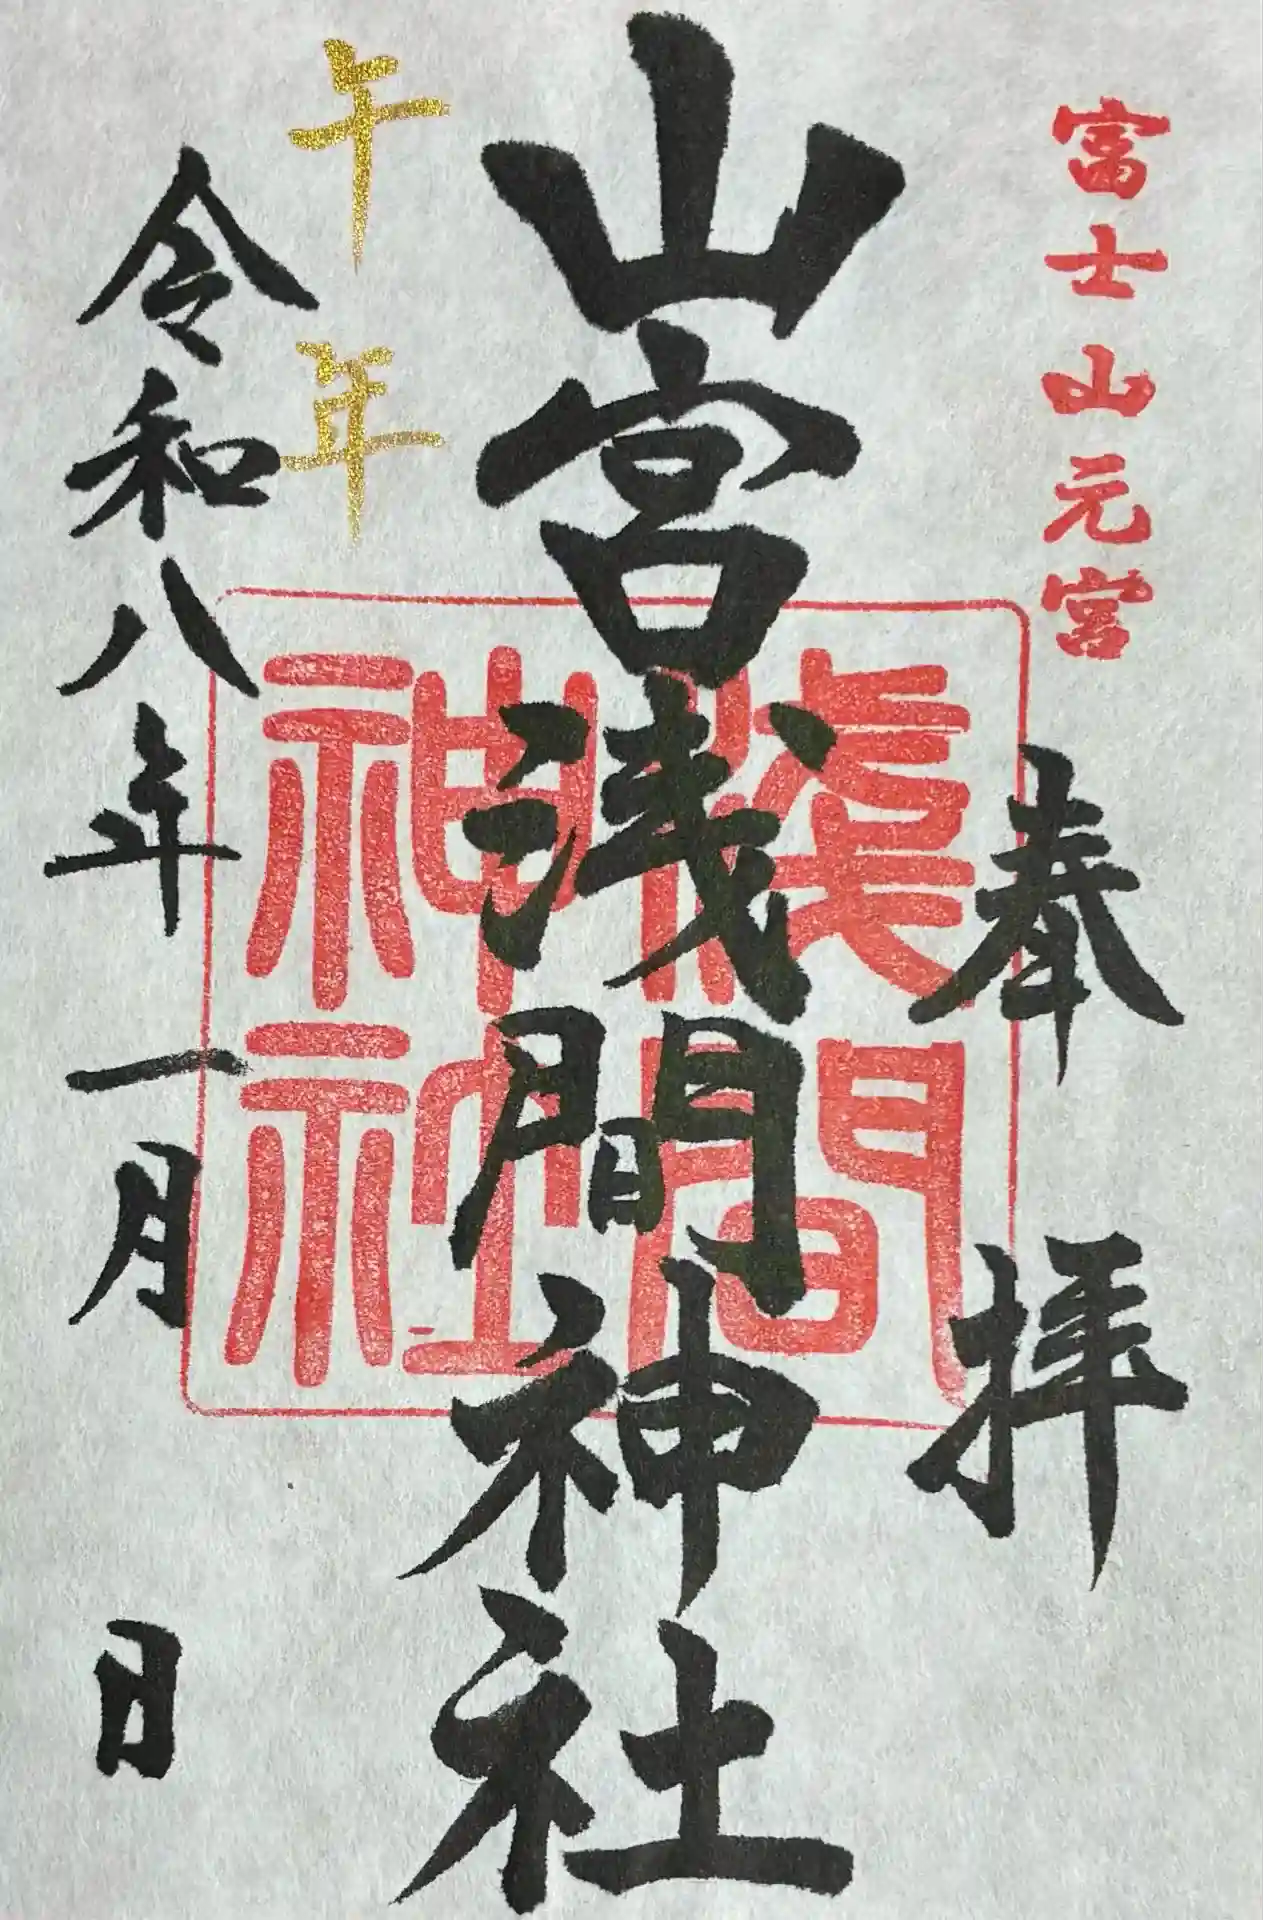 富士山元宮
奉拝
山宮浅間神社
淺間
神社
午年
令和八年一月 日